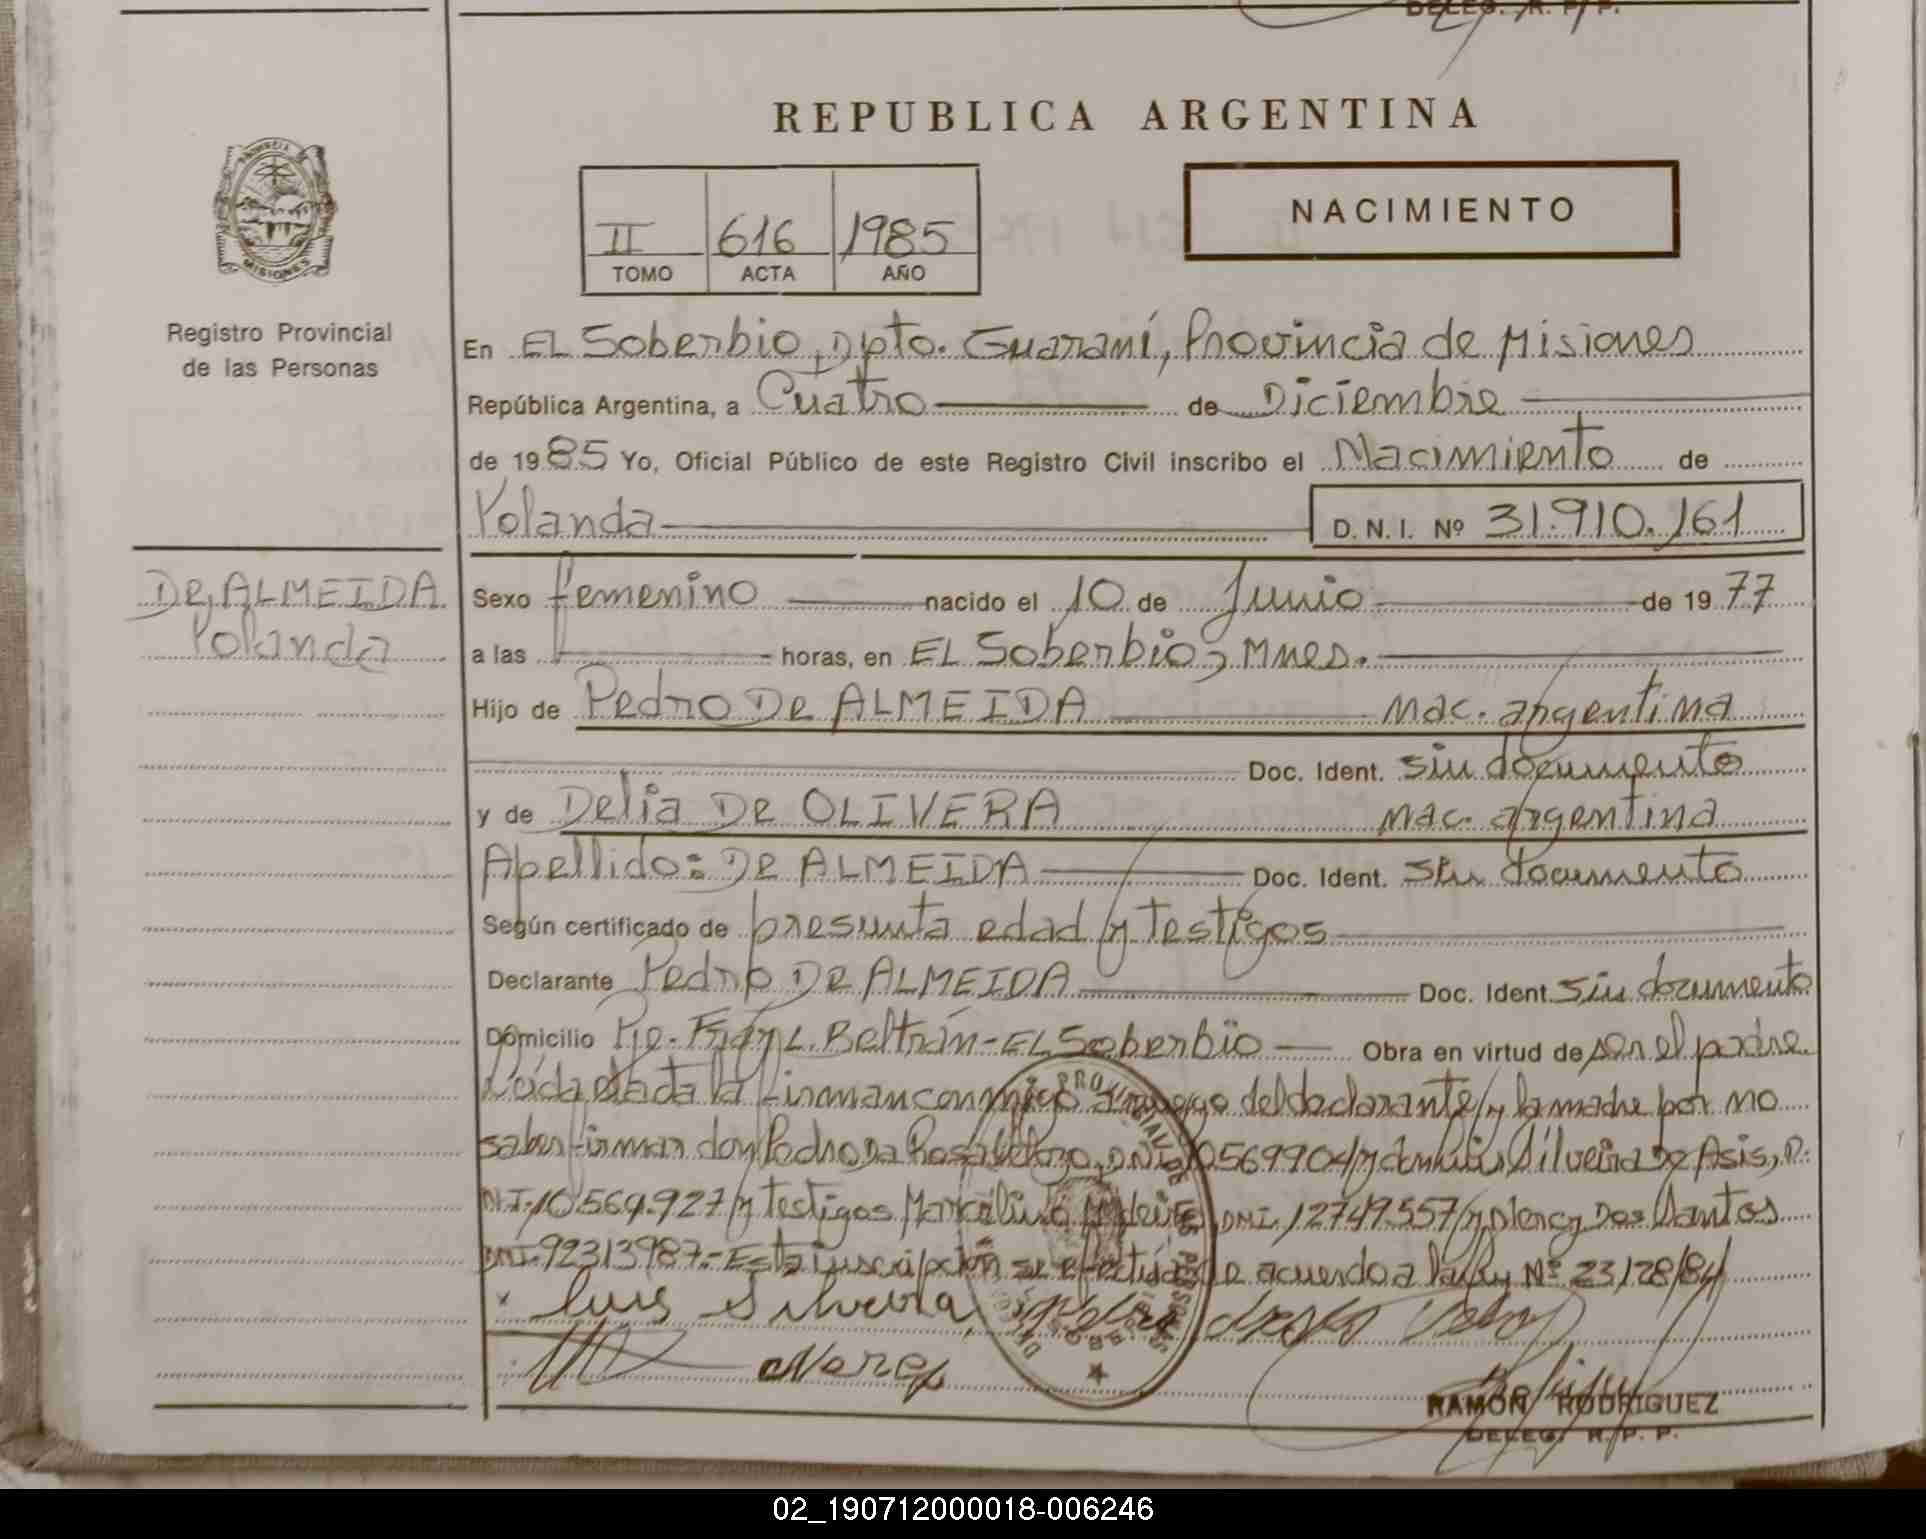 DELEG. R. P. P.
REPUBLICA ARGENTINA
PROVINCIA DE
MISIONES
NACIMIENTO
II 616 1985
TOMO ACTA AÑO
Registro Provincial
de las Personas
En EL Soberbio, Dpto. Guaraní, Provincia de Misiones
República Argentina, a Cuatro de Diciembre
de 1985 Yo, Oficial Público de este Registro Civil inscribo el Nacimiento de
Yolanda D. N. I. Nº 31.910.161
De ALMEIDA
Yolanda
Sexo femenino nacido el 10 de Junio de 1977
a las horas, en EL Soberbio, Mnes.
Hijo de Pedro De ALMEIDA nac. argentina
Doc. Ident. sin documento
y de Delia De OLIVERA nac. argentina
Apellido: De ALMEIDA Doc. Ident. sin documento
Según certificado de presunta edad y testigos
Declarante Pedro De ALMEIDA Doc. Ident. sin documento
Domicilio Pje. Fray L. Beltrán - EL Soberbio Obra en virtud de ser el padre.
Leída el acta la firman conmigo a ruego del declarante y la madre por no
saber firmar don Pedro Da Rosa DNI 10569904 y Silveira De Asis, D.
NI. 10.569.927 y testigos Marcelino DNI. 12749.557 y Nercy Dos Santos
DNI. 92313987.- Esta inscripción se efectúa de acuerdo a la ley Nº 23128/84
x Luis Silveira
Nercy
RAMON RODRIGUEZ
DELEG. R. P. P.
02_190712000018-006246